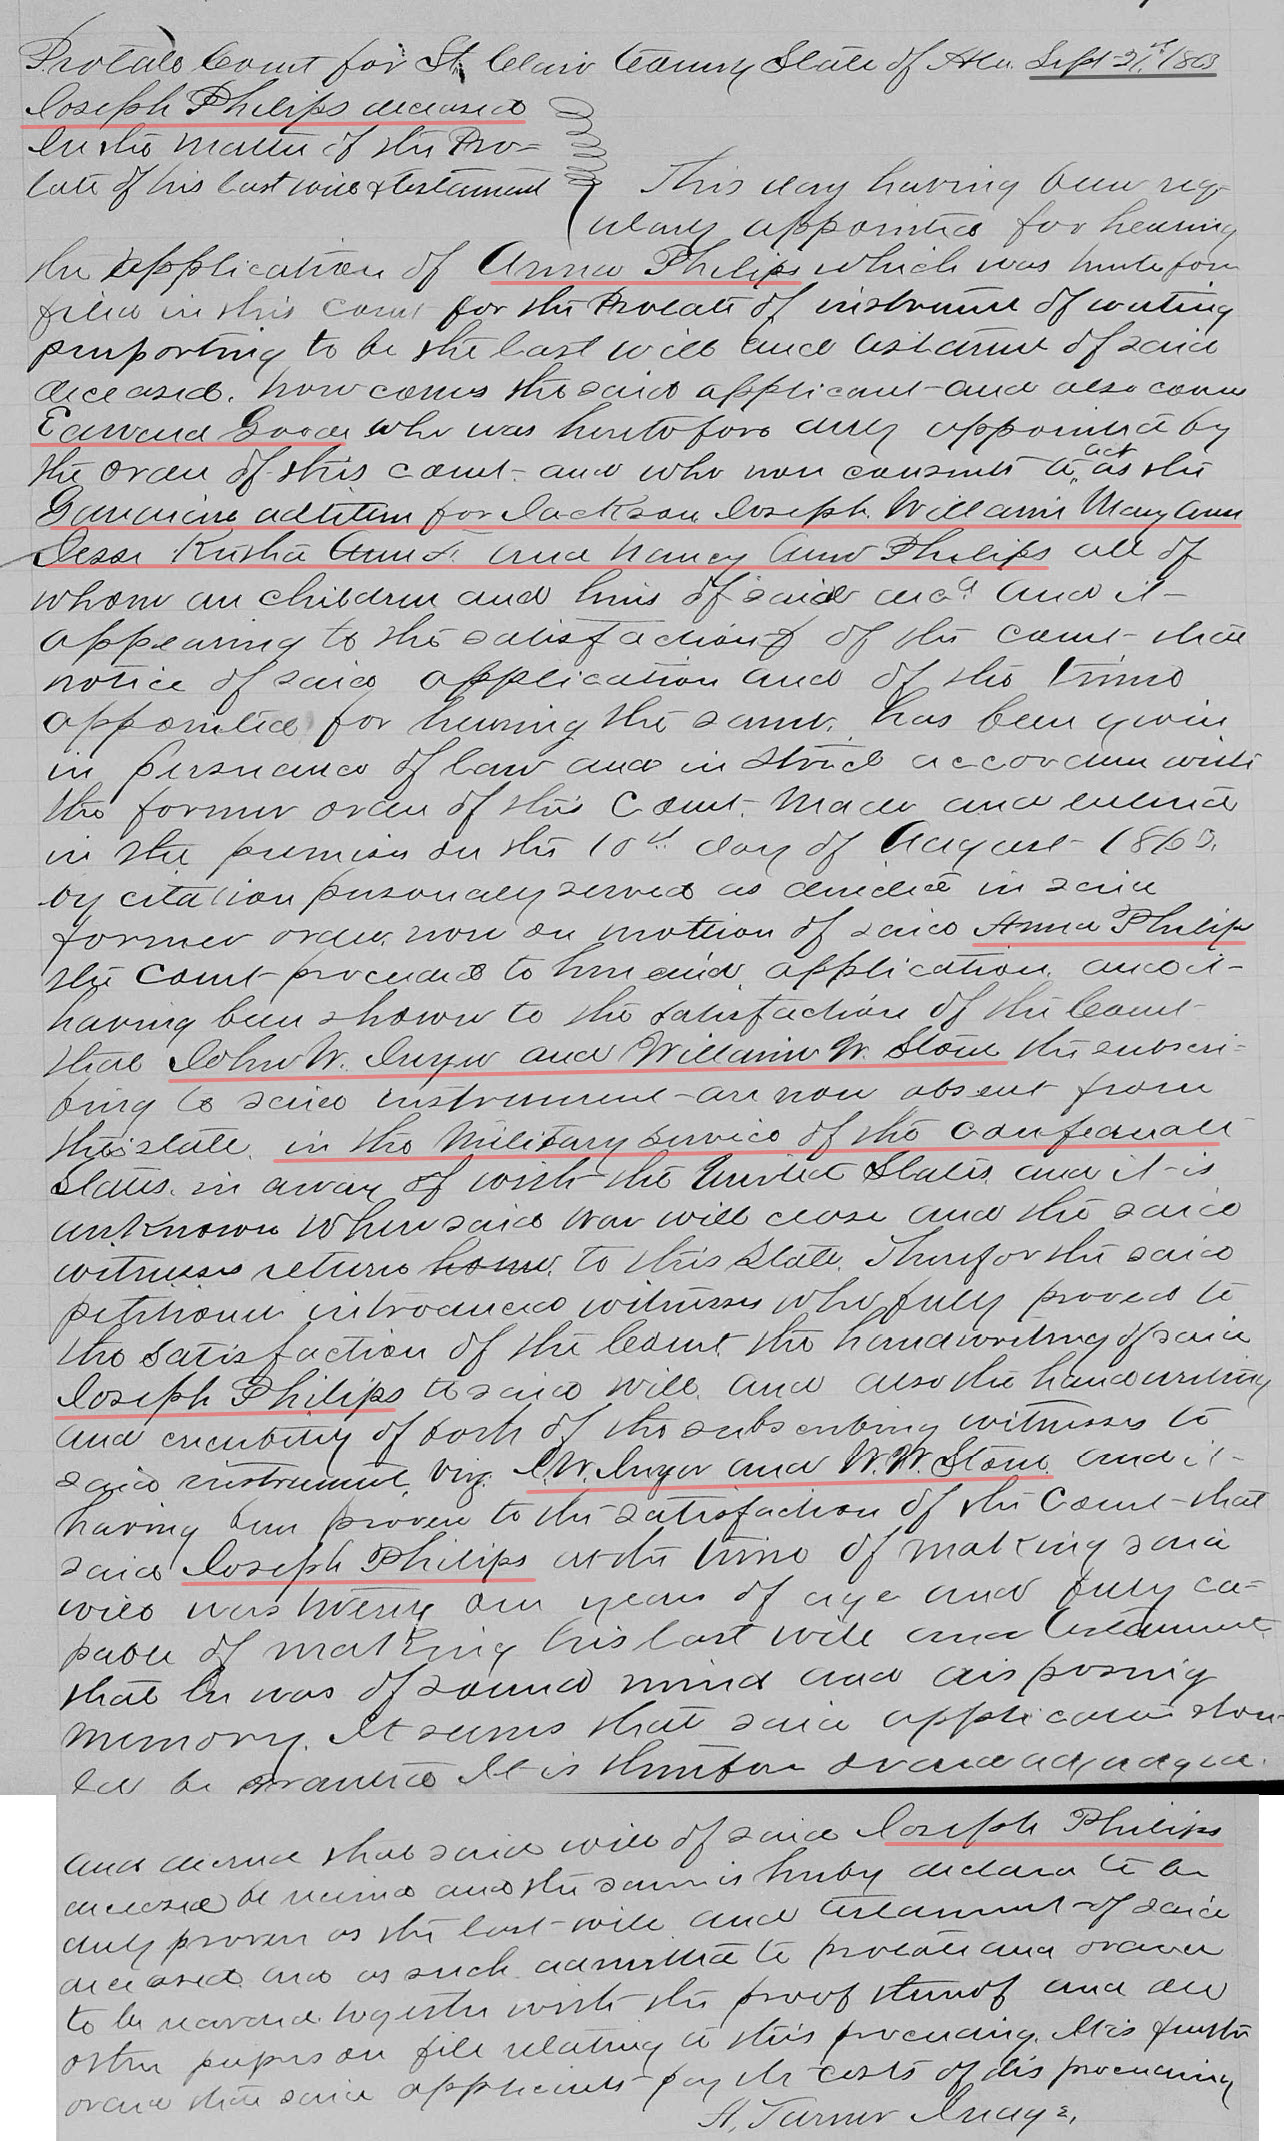 Probate Court for St. Clair County State of Ala. Sept 21st 1863
Joseph Philips deceased
In the matter of the Pro-
bate of his last will & testament This day having been reg-
ularly appointed for hearing
the application of Anna Philips which was heretofore
filed in this Court for the Probate of instrument of writing
purporting to be the last will and testament of said
deceased. now comes the said applicant and also comes
Edward Goode who was heretofore duly appointed by
the order of this court and who now consents to act as the
Guardian adlitem for Jackson Joseph. William Mary Ann
Jesse Kisha Ann F. and Nancy Ann Philips all of
whom are children and heirs of said decd and it
appearing to the satisfaction of the court that
notice of said application and of the time
appointed for hearing the same. has been given
in persuance of law and in strict accordance with
the former order of this Court. Made and entered
in the premises on the 10th day of August 1863.
by citation personally served as directed in said
former order. now on motion of said Anna Philips
the Court proceeded to hear said application. and it
having been shown to the satisfaction of the Court
that John W. Inzer and William W. Stone the subscri-
bing to said instrument are now absent from
this state. in the Military service of the Confederate
States. in a war of with the United States and it is
unknown when said war will close and the said
witnesses return home. to this State. Therefor the said
petitioner introduced witnesses who fully proved to
the satisfaction of the Court the handwriting of said
Joseph Philips to said will. and also the handwriting
and credibility of both of the subscribing witnesses to
said instrument, viz. J. W. Inzer and W. W. Stone and it
having been proven to the satisfaction of the Court that
said Joseph Philips at the time of making said
will was twenty one years of age and fully ca-
pable of making his last will and testament
that he was of sound mind and disposing
memory. It seems that said application shou-
ld be granted It is therefore ordered adjudged
and decreed that said will of said Joseph Philips
deceased be received and the same is hereby declared to be
duly proven as the last will and testament of said
deceased and as such admitted to probate and ordered
to be recorded together with the proof thereof and all
other papers on file relating to this proceeding. It is further
ordered that said applicants pay the costs of this proceeding
A. Turner Judge.